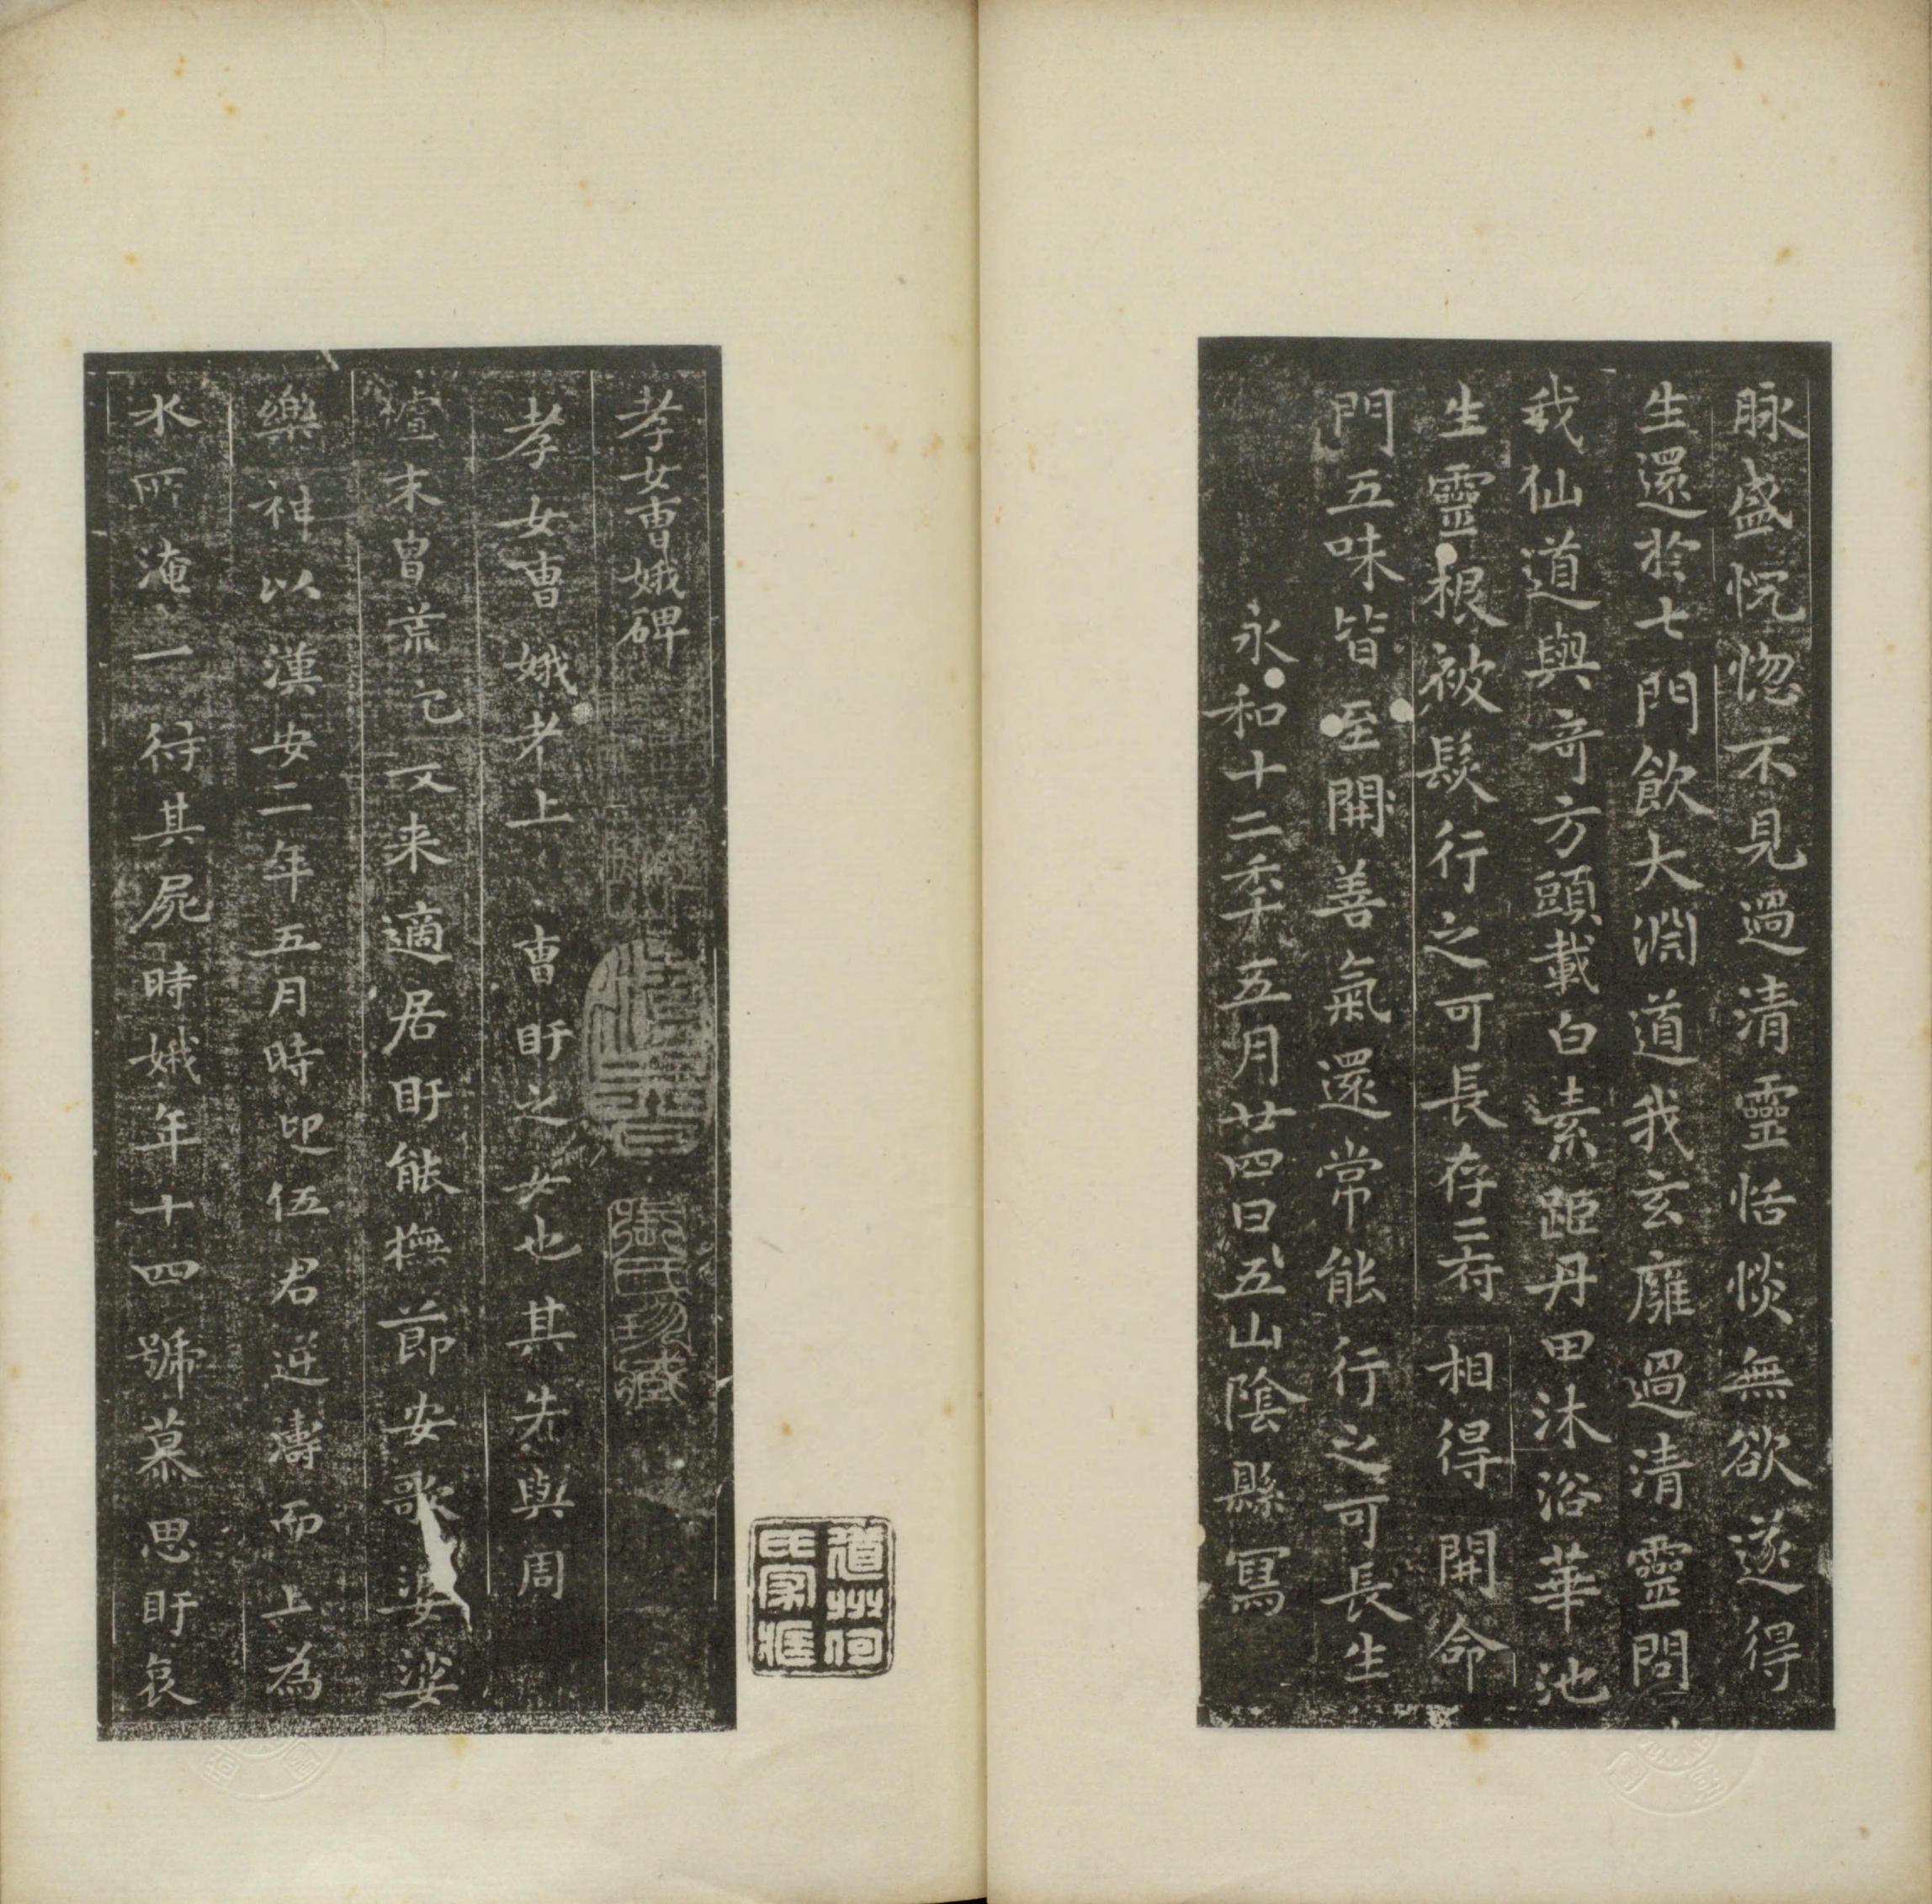 脉盛怳惚不見過清靈恬惔無欲遂得
生還於七門飲大淵道我玄廱過清靈問
我仙道與奇方頭載白素距丹田沐浴華池
生靈根被髮行之可長存二府相得開命
門五味皆至開善氣還常能行之可長生
永和十二年五月廿四日五山陰縣寫
孝女曹娥碑
孝女曹娥者上曹盱之女也其先與周
末胄荒沉爰来適居盱能撫節安歌婆娑
樂神以漢安二年五月時迎伍君逆濤而上為
水所淹不得其屍時娥年十四號慕思盱哀
陶氏珍藏
道州何氏家藏